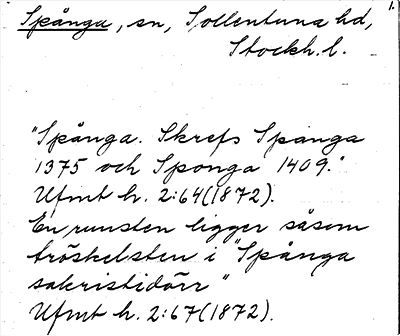 1.
Spånga, sn, Sollentuna hd,
Stockh. l.
"Spånga. Skrefs Spanga
1375 och Sponga 1409."
Ufmt h. 2:64 (1872).
En runsten ligger såsom
tröskelsten i "Spånga
sakristidörr"
Ufmt h. 2:67 (1872).